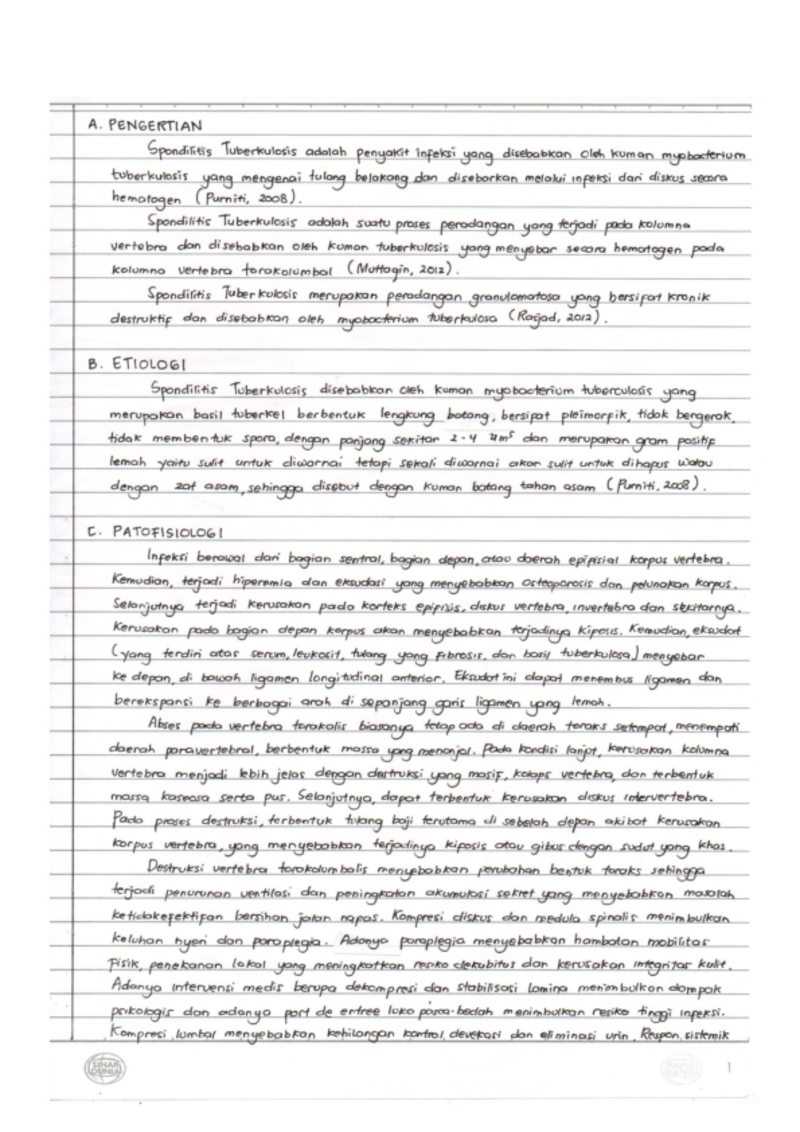 A. PENGERTIAN
Spondilitis Tuberkulosis adalah penyakit infeksi yang disebabkan oleh kuman myobacterium
tuberkulosis yang mengenai tulang belakang dan disebarkan melalui infeksi dari diskus secara
hematogen (Purniti, 2008).
Spondilitis Tuberkulosis adalah suatu proses peradangan yang terjadi pada kolumna
vertebra dan disebabkan oleh kuman tuberkulosis yang menyebar secara hematogen pada
kolumna vertebra torakolumbal (Muttaqin, 2012).
Spondilitis Tuberkulosis merupakan peradangan granulomatosa yang bersifat kronik
destruktif dan disebabkan oleh myobacterium tuberkulosa (Rasjad, 2012).
B. ETIOLOGI
Spondilitis Tuberkulosis disebabkan oleh kuman myobacterium tuberculosis yang
merupakan basil tuberkel berbentuk lengkung batang, bersifat pleimorfik, tidak bergerak,
tidak membentuk spora, dengan panjang sekitar 2-4 dan merupakan gram positif
lemah yaitu sulit untuk diwarnai tetapi sekali diwarnai akan sulit untuk dihapus walau
dengan zat asam, sehingga disebut dengan kuman batang tahan asam (Purniti, 2008).
C. PATOFISIOLOGI
Infeksi berawal dari bagian sentral, bagian depan, atau daerah epifisial korpus vertebra.
Kemudian, terjadi hiperemia dan eksudasi yang menyebabkan osteoporosis dan pelunakan korpus.
Selanjutnya terjadi kerusakan pada korteks epifisis, diskus vertebra, invertebra dan sekitarnya.
Kerusakan pada bagian depan korpus akan menyebabkan terjadinya kifosis. Kemudian, eksudat
(yang terdiri atas serum, leukosit, tulang yang fibrosis, dan basil tuberkulosa) menyebar
ke depan, di bawah ligamen longitudinal anterior. Eksudat ini dapat menembus ligamen dan
berekspansi ke berbagai arah di sepanjang garis ligamen yang lemah.
Abses pada vertebra torakalis biasanya tetap ada di daerah toraks setempat, menempati
daerah paravertebral, berbentuk massa yang menonjol. Pada kondisi lanjut, kerusakan kolumna
vertebra menjadi lebih jelas dengan destruksi yang masif, kolaps vertebra, dan terbentuk
massa kaseosa serta pus. Selanjutnya, dapat terbentuk kerusakan diskus intervertebra.
Pada proses destruksi, terbentuk tulang baji terutama di sebelah depan akibat kerusakan
korpus vertebra, yang menyebabkan terjadinya kifosis atau gibus dengan sudut yang khas.
Destruksi vertebra torakolumbalis menyebabkan perubahan bentuk toraks sehingga
terjadi penurunan ventilasi dan peningkatan akumulasi sekret yang menyebabkan masalah
ketidakefektifan bersihan jalan napas. Kompresi diskus dan medula spinalis menimbulkan
keluhan nyeri dan paraplegia. Adanya paraplegia menyebabkan hambatan mobilitas
fisik, penekanan lokal yang meningkatkan resiko dekubitus dan kerusakan integritas kulit.
Adanya intervensi medis berupa dekompresi dan stabilisasi lamina menimbulkan dampak
psikologis dan adanya port de entree luka pasca-bedah menimbulkan resiko tinggi infeksi.
Kompresi lumbal menyebabkan kehilangan kontrol, devekasi dan eliminasi urin. Respon sistemik
SINAR
DUNIA
1